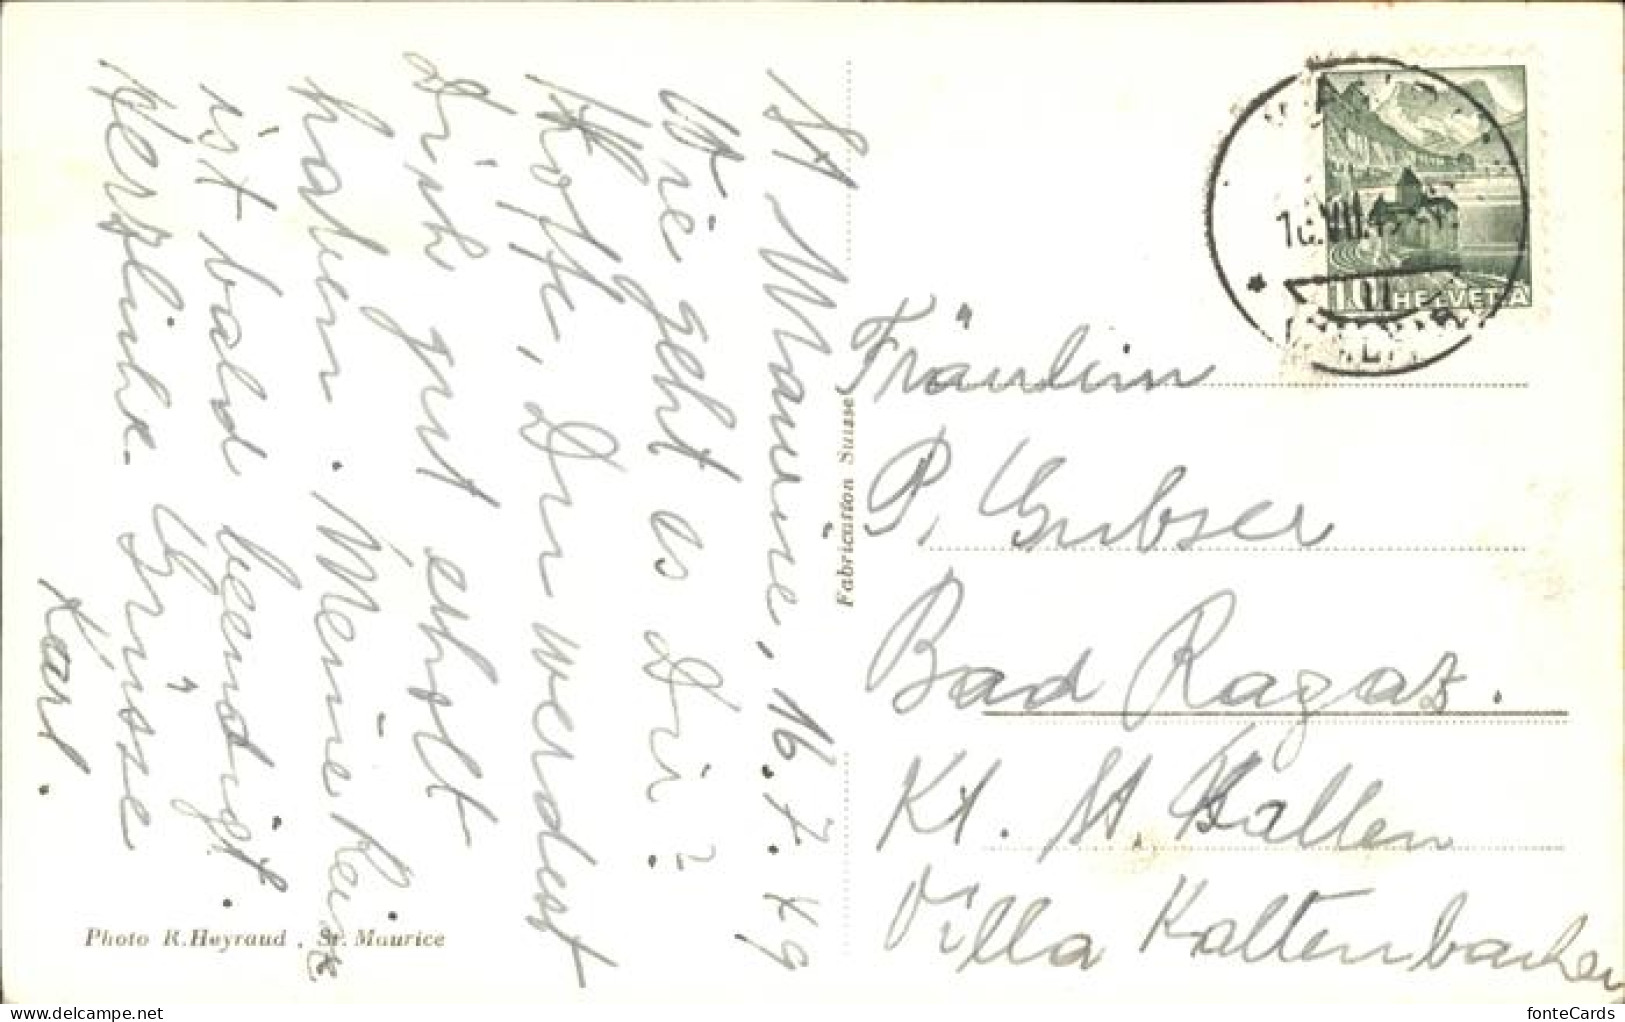 St Maurice, 16.7.49
Wie geht es Dir?
Hoffe, Du werdest
Dich gut erholt
haben. Meine Reise
ist bald beendigt.
Herzliche Grüsse
Karl.
Fabrication Suisse
Photo R. Heyraud, St. Maurice
10 HELVETIA
Fräulein
P. Gubser
Bad Ragaz.
Kt. St. Gallen
Villa Kaltenbacher
fonteCards